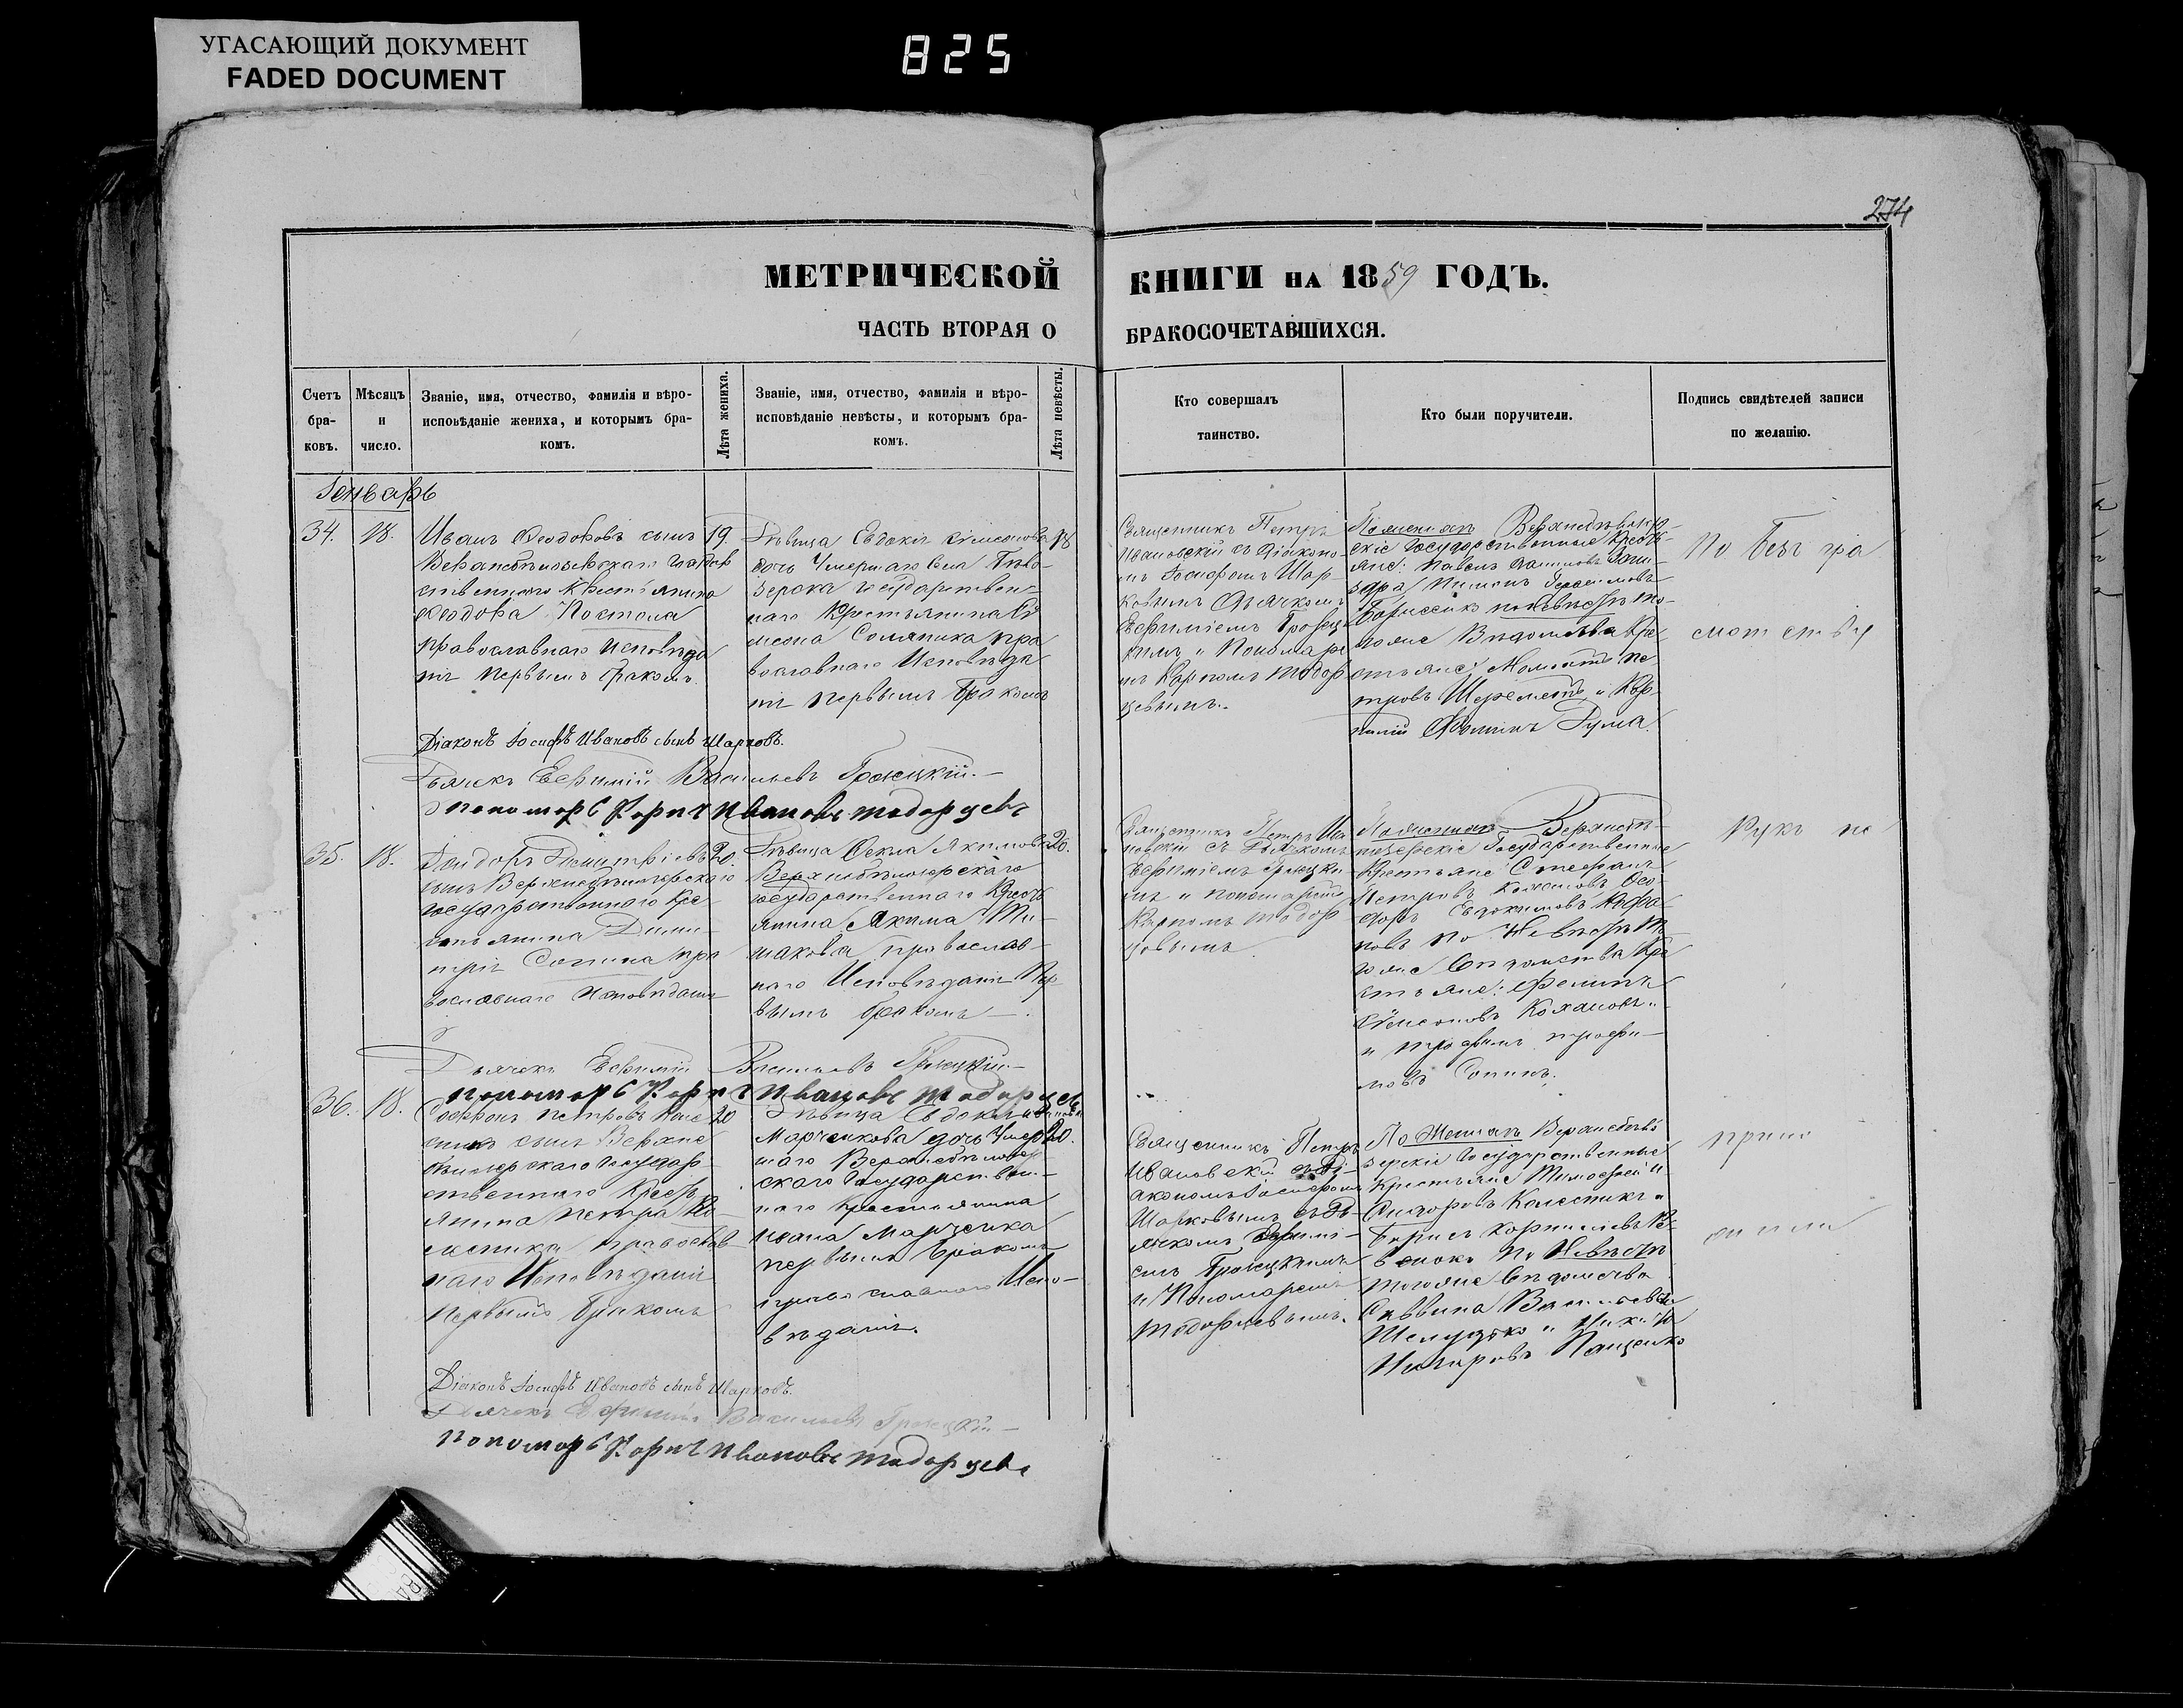 УГАСАЮЩИЙ ДОКУМЕНТ
FADED DOCUMENT
825
274
МЕТРИЧЕСКОЙ КНИГИ НА 1859 ГОДЪ.
ЧАСТЬ ВТОРАЯ О БРАКОСОЧЕТАВШИХСЯ.
Счетъ
бра-
ковъ.
Мѣсяцъ
и
число.
Званіе, имя, отчество, фамилія и вѣро-
исповѣданіе жениха, и которымъ бра-
комъ.
Лѣта жениха.
Званіе, имя, отчество, фамилія и вѣро-
исповѣданіе невѣсты, и которымъ бра-
комъ.
Лѣта невѣсты.
Кто совершалъ
таинство.
Кто были поручители.
Подпись свидѣтелей записи
по желанію.
Генварь
34.
18.
Иванъ Феодоровъ сынъ
ственнаго Крестьянина
Феодора
православнаго Исповѣда
ніе первымъ бракомъ.
19.
Дѣвица Евдокія Сѵмеонова
дочь Умершаго Села Бѣло-
зерска государствен-
наго Крестьянина Сѵ
меона Соляника пра
вославнаго Исповѣда
ніе первымъ бракомъ
18
Священникъ Петръ
Ивановскій съ Діаконо-
мъ Іосифомъ Шар-
ковымъ Дьячкомъ
Ефиміемъ Троецк
имъ и Пономаре
мъ Карпомъ Тодор
цевымъ.
По женихѣ
скіе Государственные Кресть
яне: Павелъ
по невѣстѣ то
гоже Вѣдомства Кре
стьяне:
тровъ Шереметъ и
По безгра
мотству
Діаконъ Іосифъ Ивановъ сынъ Шарковъ.
Дьячекъ Ефимій Васильевъ Троецкій.
пономарь Карпъ Ивановъ Тодорцевъ
35.
18.
Димитріевъ
сынъ Верхнебѣлозерскаго
государственнаго Кре-
стьянина Дими-
трія Сопина пра
вославнаго Исповѣданія
20.
Дѣвица Фекла Якимова
Верхнебѣлозерскаго
государственнаго Кресть
янина Якима
православ-
наго Исповѣданія Пер
вымъ бракомъ
20.
Священникъ Петръ Ива
новскій съ Дьячкомъ
Ефиміемъ Троецки
мъ и пономаремъ
Карпомъ Тодор
цовымъ
По женихѣ
Государственные
Крестьяне Стефанъ
Петровъ
Евдокимовъ
по Невѣстѣ То
гоже Вѣдомства Кре
стьяне:
Сѵмеоновъ
и Трофимъ Трофи-
мовъ Сопинъ.
Рукъ не
Дьячекъ Ефимій Васильевъ Троецкій.
пономарь Карпъ Ивановъ Тодорцевъ
36.
18.
Софронъ Петровъ
сынъ Верхне
бѣлозерскаго Государ
ственнаго Кресть
янина Петра Ко
лесника православ-
наго Исповѣданія
Первымъ бракомъ
20
Дѣвица Евдокія
Марченкова дочь Умер
шаго Верхнебѣлозер
скаго Государствен-
наго Крестьянина
Ивана Марченка
первымъ бракомъ
православнаго Испо-
вѣданія.
20.
Священникъ Петръ
Ивановскій съ Ді-
акономъ Іосифомъ
Шарковымъ съ Дь-
ячкомъ Ефимі-
емъ Троецкимъ
и Пономаремъ
Тодорцевымъ.
По Женихѣ Верхнебѣло
зерскіе Государственные
Крестьяне Тимофей
Колесникъ и
Борисъ Корниліевъ
По Невѣстѣ
тогоже Вѣдомства
Васильевъ
и
Пащенко
прило
жили
Діаконъ Іосифъ Ивановъ сынъ Шарковъ.
Дьячекъ Ефимій Васильевъ Троецкій
пономарь Карпъ Ивановъ Тодорцевъ